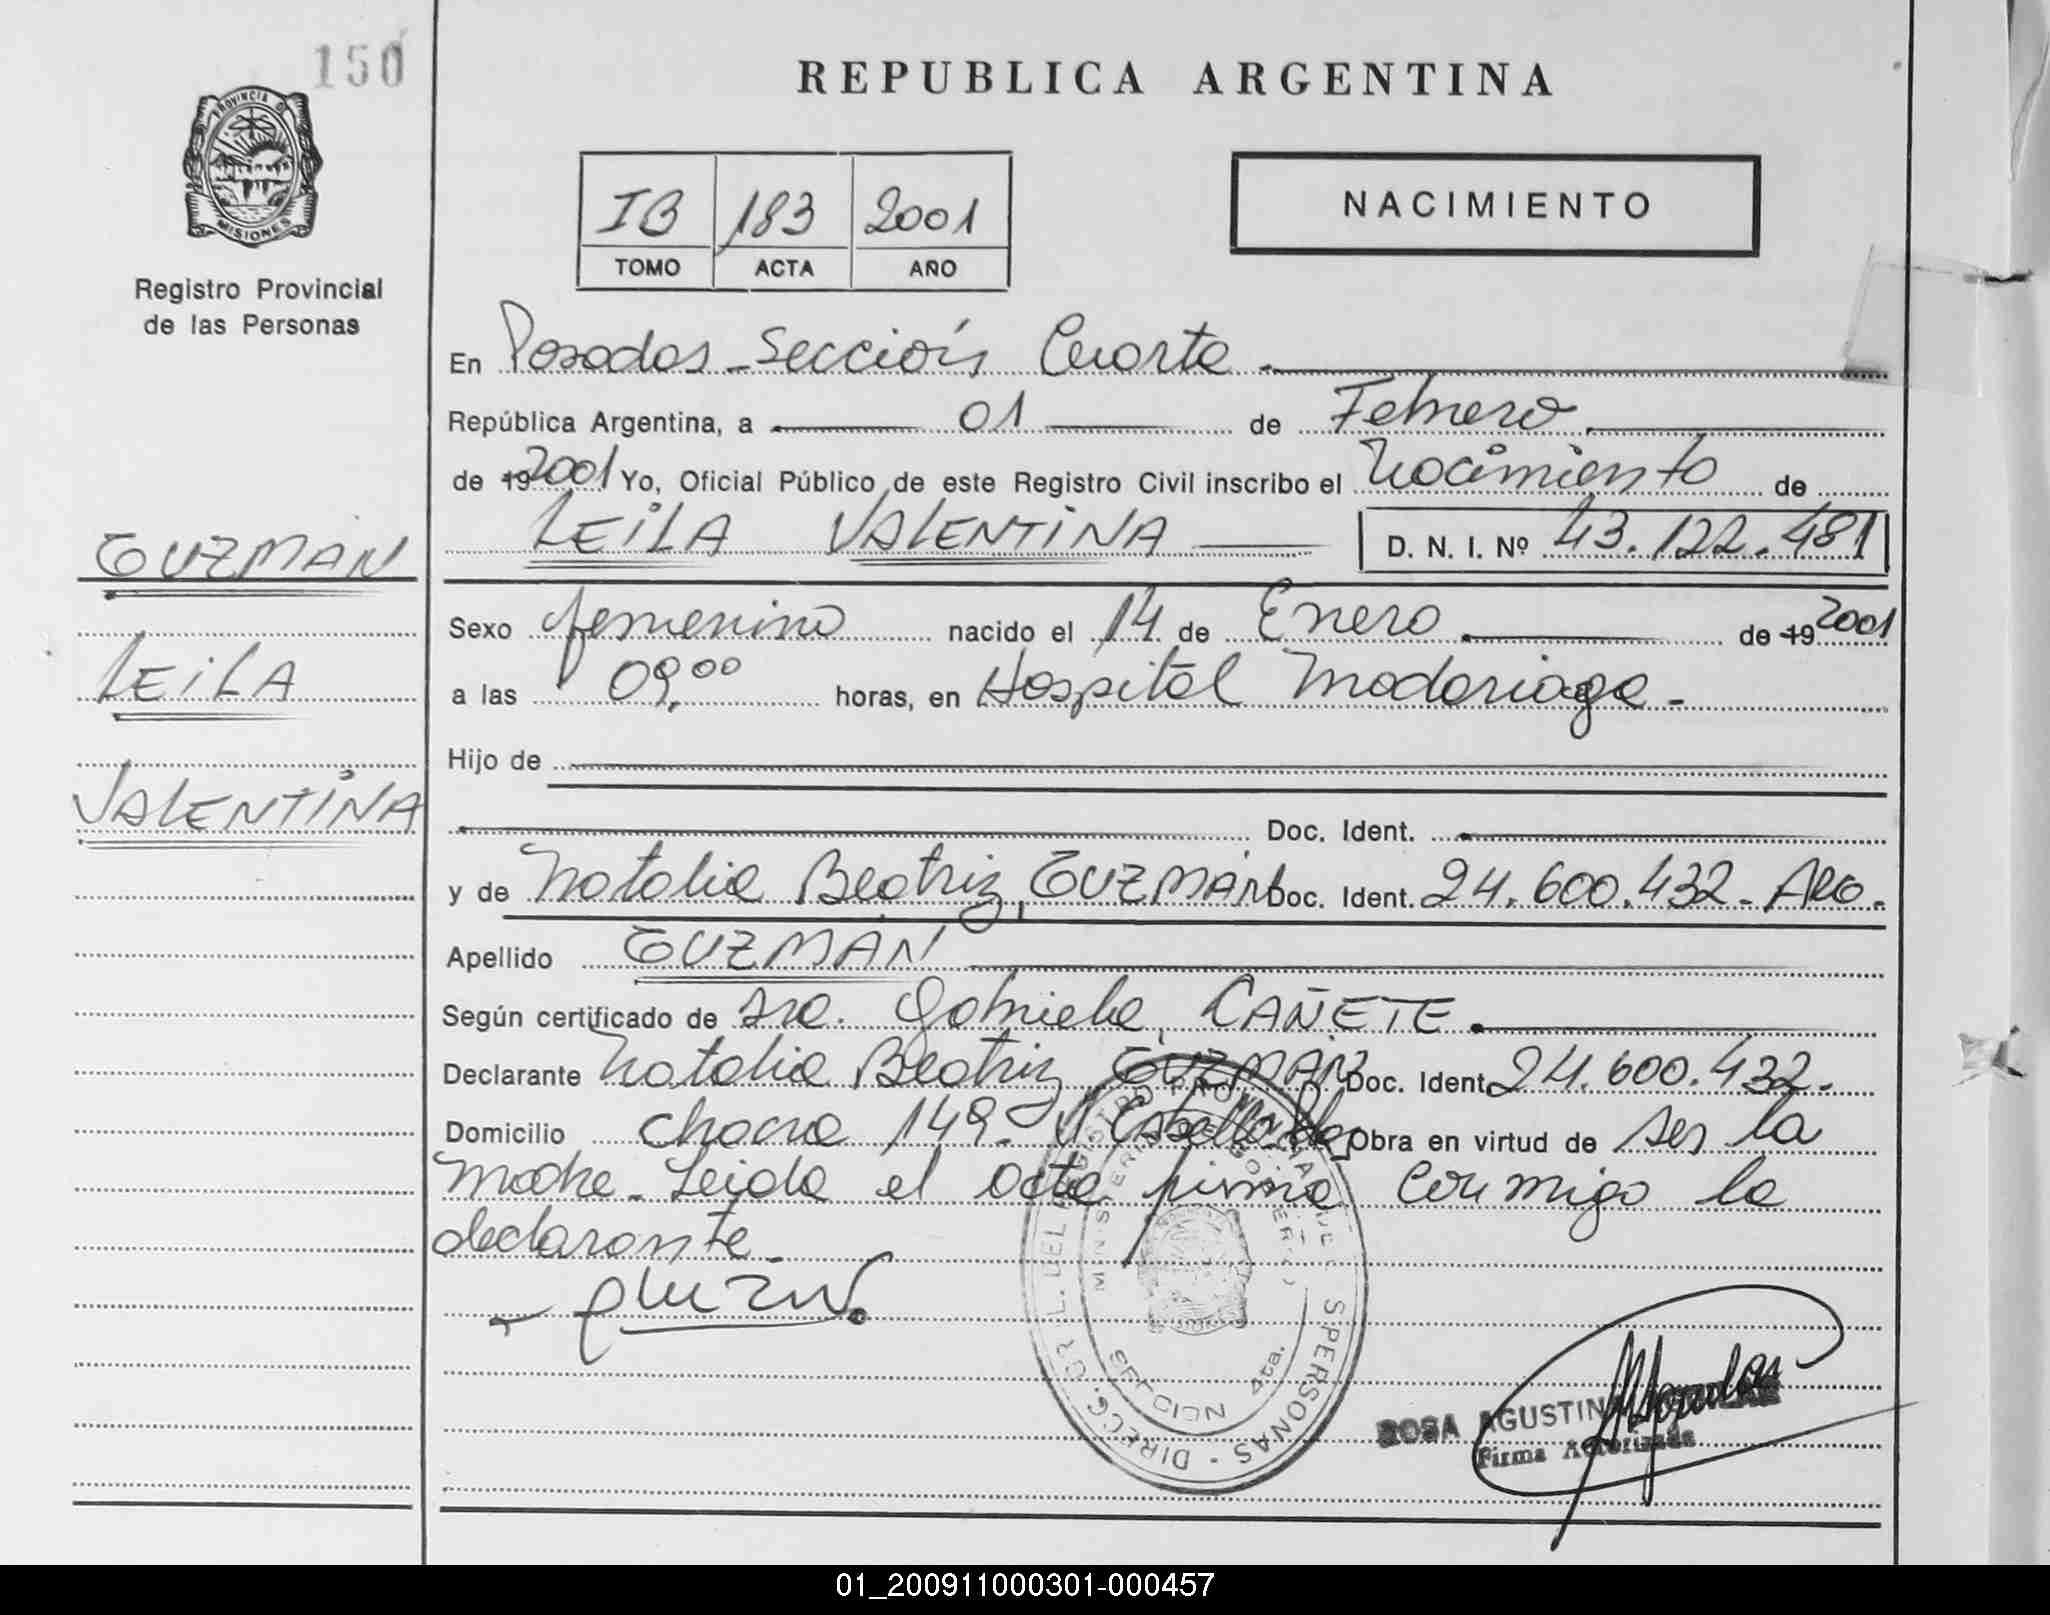 150
REPUBLICA ARGENTINA
PROVINCIA D MISIONES
Registro Provincial
de las Personas
IB 183 2001
TOMO ACTA AÑO
NACIMIENTO
En Posadas - Sección Cuarta.
República Argentina, a 01 de Febrero
de 19 2001 Yo, Oficial Público de este Registro Civil inscribo el Nacimiento de
LEILA VALENTINA D. N. I. Nº 43.122.481
GUZMAN
LEILA
VALENTINA
Sexo femenino nacido el 14 de Enero de 19 2001
a las 09,00 horas, en Hospital Madariaga -
Hijo de
Doc. Ident.
y de Natalia Beatriz, GUZMÁN Doc. Ident. 24.600.432 - ARG.
Apellido GUZMÁN
Según certificado de Sra. Gabriela, CAÑETE.
Declarante Natalia Beatriz GUZMÁN Doc. Ident. 24.600.432.
Domicilio chacra 149 - Obra en virtud de ser la
madre - Leida el acta firma conmigo la
declarante -
DIRECC. GRAL. DEL REGISTRO PROVINCIAL DE LAS PERSONAS
MINISTERIO DE GOBIERNO
SECCION 4ta.
ROSA AGUSTIN
Firma Autorizada
01_200911000301-000457